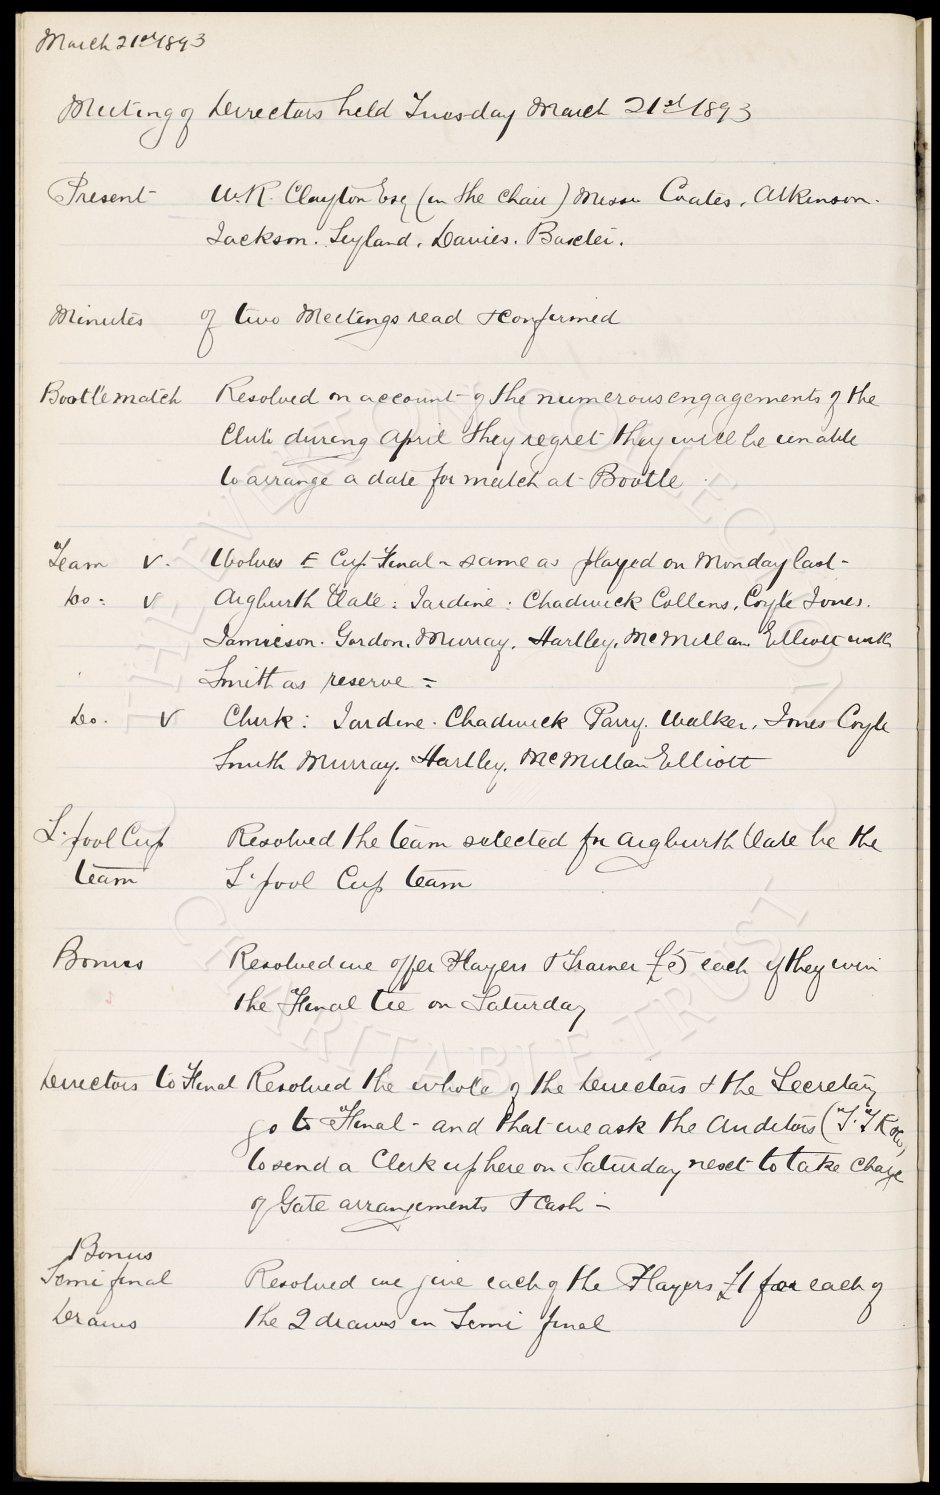 March 21st 1893
Meeting of Directors held Tuesday March 21st 1893
Present W.R. Clayton Esq (in the chair) Messrs Coates, Atkinson.
Jackson. Leyland. Davies. Baxter.
Minutes of two Meetings read & confirmed
Bootle match Resolved on account of the numerous engagements of the
Club during April they regret they will be unable
to arrange a date for match at Bootle
Team v. Wolves E Cup Final - same as played on Monday last -
Do: v Aigburth Vale: Jardine: Chadwick Collins, Coyle Jones.
Jamieson. Gordon. Murray. Hartley. McMillan Elliott with
Smith as reserve =
Do. v Chirk: Jardine. Chadwick Parry. Walker, Jones Coyle
Smith Murray. Hartley. McMillan Elliott
L'pool Cup Resolved the team selected for Aigburth Vale be the
team L'pool Cup team
Bonus Resolved we offer Players & Trainer £5 each if they win
the Final tie on Saturday
Directors to Final Resolved the whole of the Directors & the Secretary
go to Final - and that we ask the Auditors (
to send a Clerk up here on Saturday next to take charge
of Gate arrangements & cash -
Bonus
Semi final Resolved we give each of the Players £1 for each of
Draws the 2 draws in Semi final
THE EVERTON COLLECTION
CHARITABLE TRUST